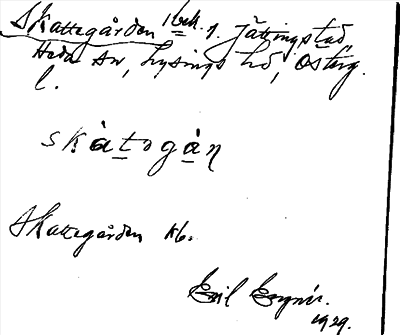 Skattegården 1 bek. 1. Jättingstad
Heda sn, Lysings hd, Österg.
l.
skàtogàn
Skattegården kb.
Emil
1929.